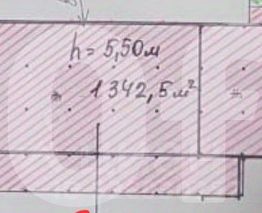 h = 5,50м
1342,5м²